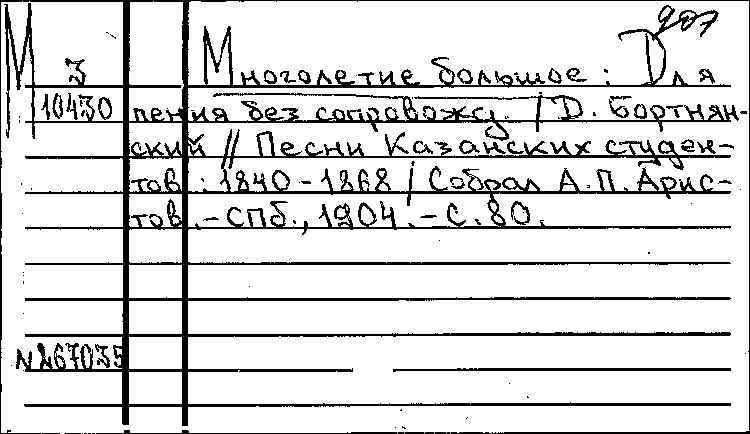 907
М 3 Многолетие большое : Для
10430 пения без сопровожд. / Д. Бортнян-
ский // Песни Казанских студен-
тов : 1840-1868 / Собрал А.П. Арис-
тов. - СПб., 1904. - С. 80.
№267035